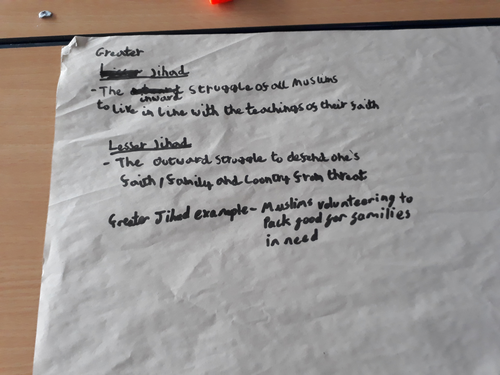 Greater
Jihad
- The inward struggle of all Muslims
to live in line with the teachings of their faith
Lesser Jihad
- The outward struggle to defend one's
faith, family and country from threat
Greater Jihad example - Muslims volunteering to
pack good for families
in need